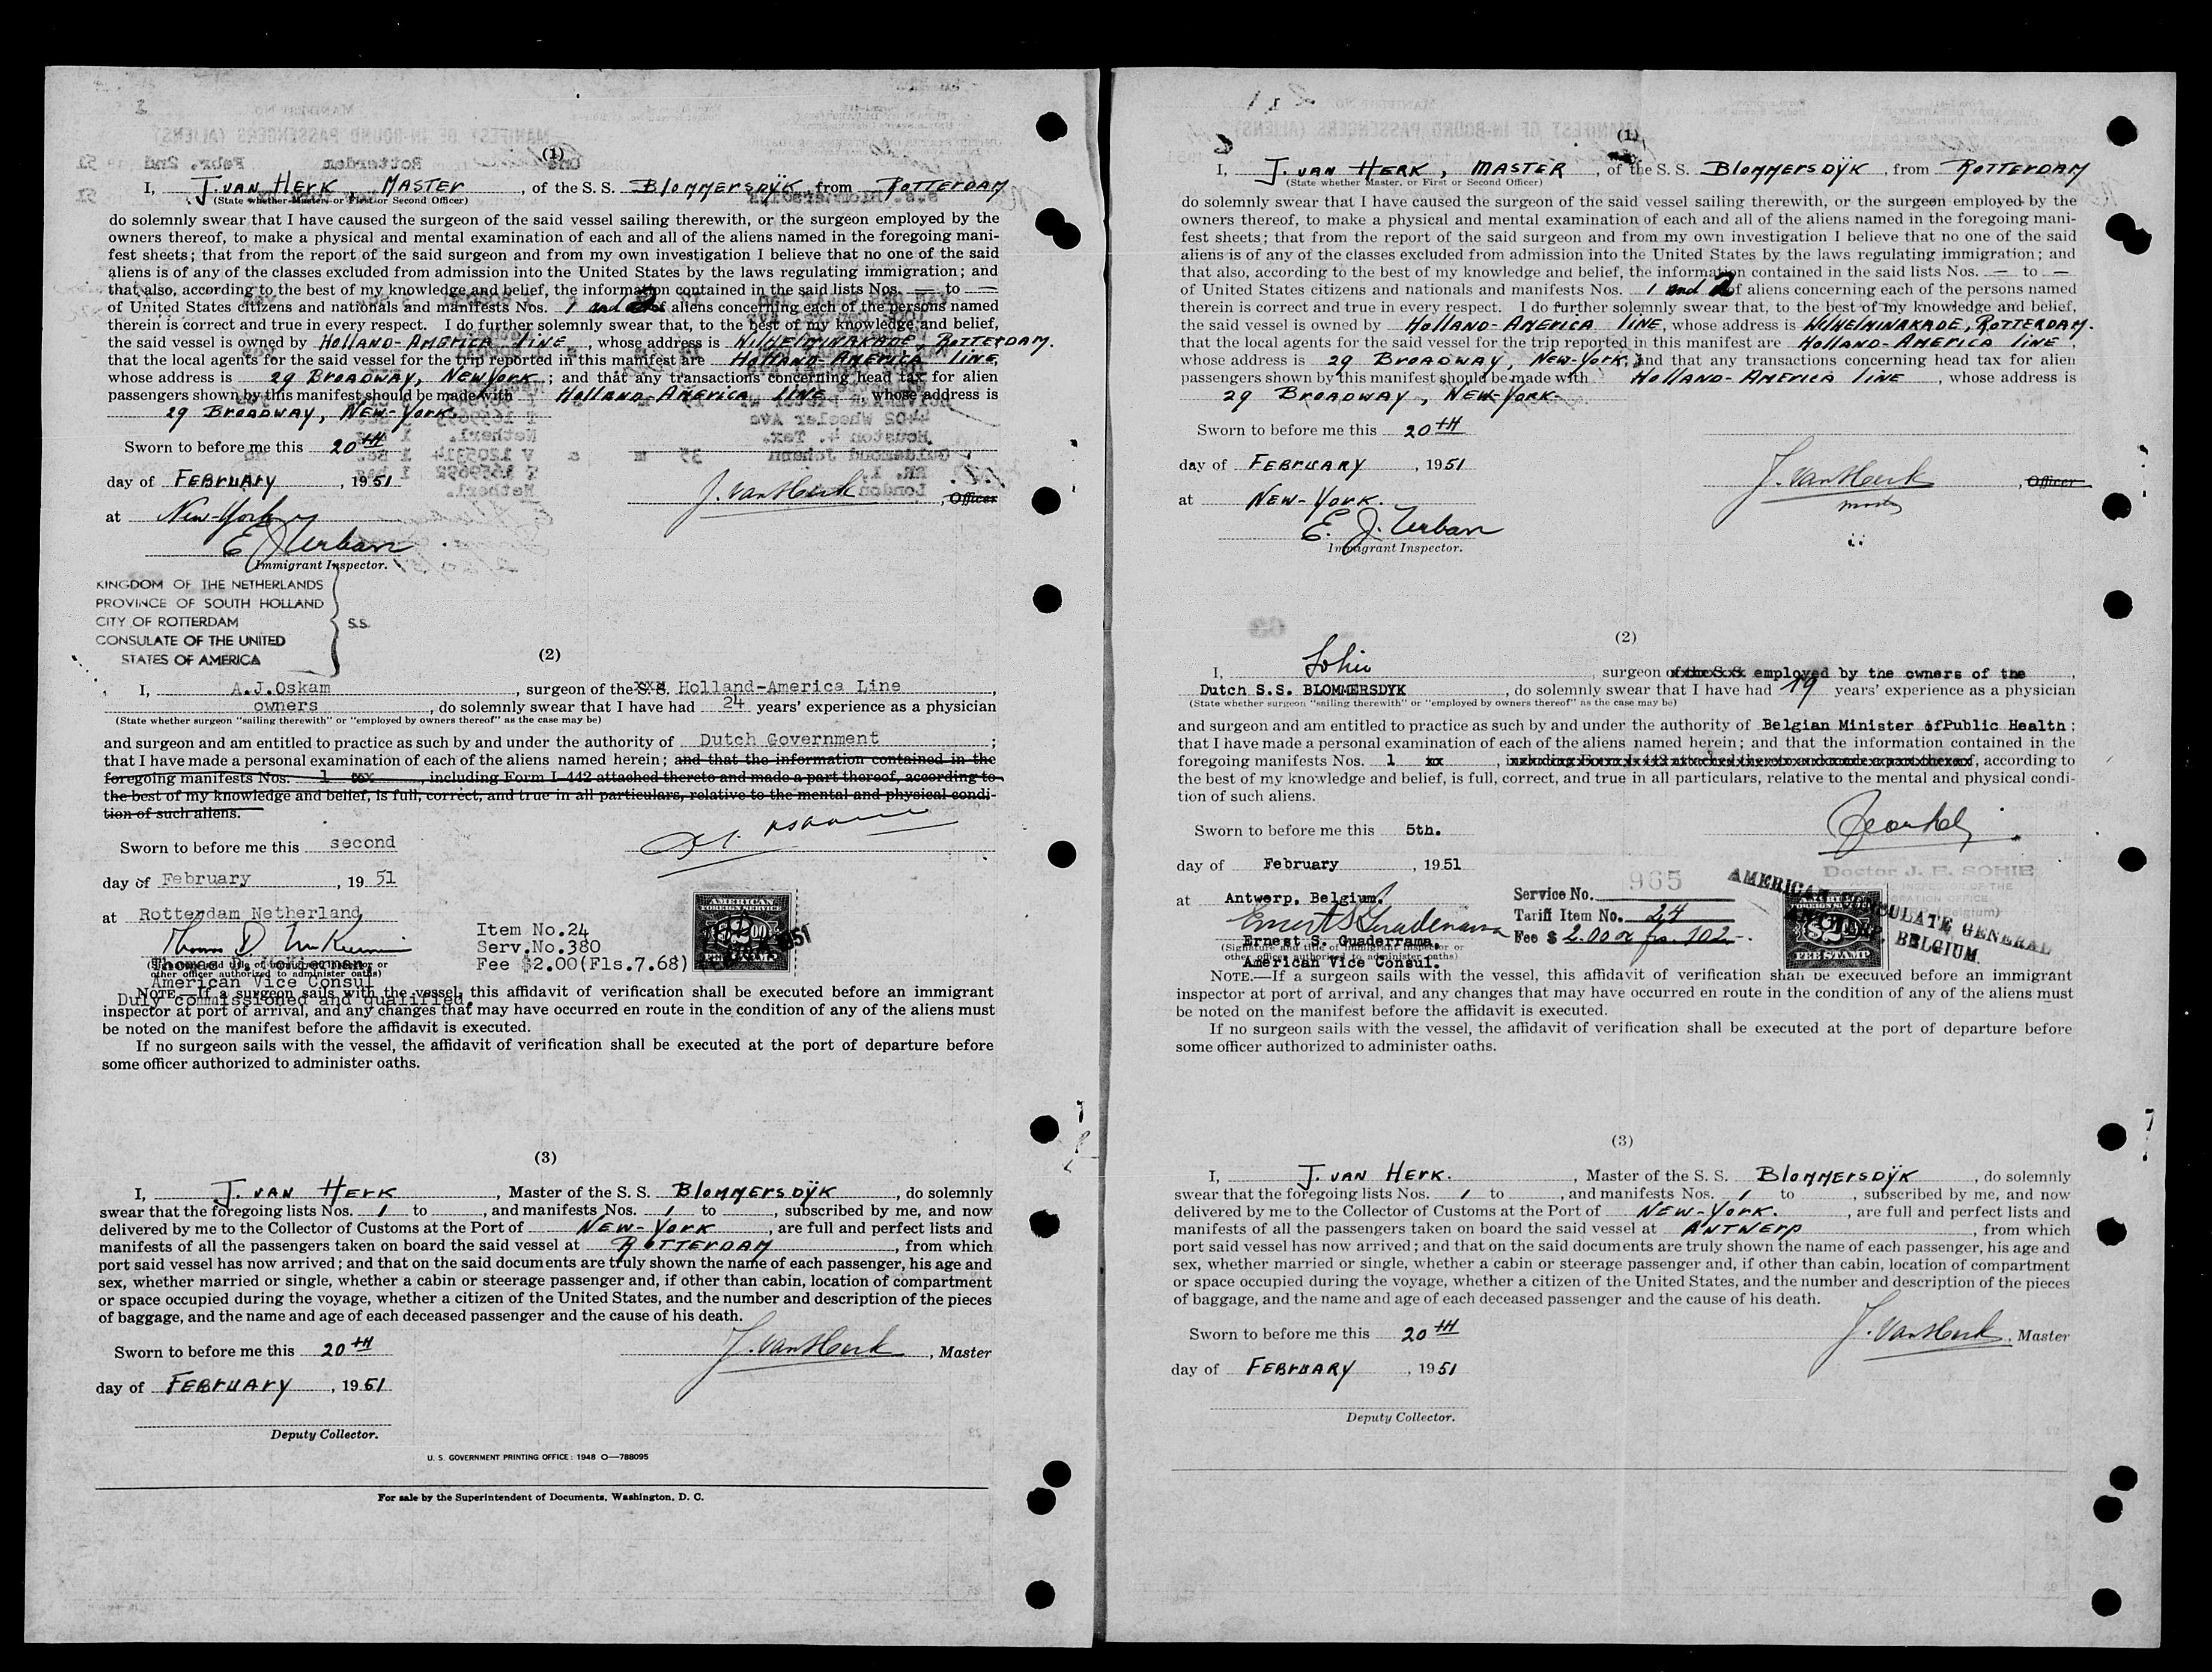 (1)
I, J. VAN HERK, MASTER, of the S. S. BLOMMERSDYK, from ROTTERDAM
(State whether Master, or First or Second Officer)
do solemnly swear that I have caused the surgeon of the said vessel sailing therewith, or the surgeon employed by the
owners thereof, to make a physical and mental examination of each and all of the aliens named in the foregoing mani-
fest sheets; that from the report of the said surgeon and from my own investigation I believe that no one of the said
aliens is of any of the classes excluded from admission into the United States by the laws regulating immigration; and
that also, according to the best of my knowledge and belief, the information contained in the said lists Nos. — to —
of United States citizens and nationals and manifests Nos. 1 and 2 of aliens concerning each of the persons named
therein is correct and true in every respect. I do further solemnly swear that, to the best of my knowledge and belief,
the said vessel is owned by HOLLAND-AMERICA LINE, whose address is WILHELMINAKADE, ROTTERDAM.
that the local agents for the said vessel for the trip reported in this manifest are HOLLAND-AMERICA LINE,
whose address is 29 BROADWAY, NEW YORK; and that any transactions concerning head tax for alien
passengers shown by this manifest should be made with HOLLAND-AMERICA LINE, whose address is
29 BROADWAY, NEW-YORK.
Sworn to before me this 20TH
day of FEBRUARY, 1951
J. Van Herk, Officer
at New-York
E J Urban
Immigrant Inspector.
KINGDOM OF THE NETHERLANDS
PROVINCE OF SOUTH HOLLAND
CITY OF ROTTERDAM S.S.
CONSULATE OF THE UNITED
STATES OF AMERICA
(2)
I, A.J.Oskam, surgeon of the S. S. xxx Holland-America Line,
owners, do solemnly swear that I have had 24 years' experience as a physician
(State whether surgeon "sailing therewith" or "employed by owners thereof" as the case may be)
and surgeon and am entitled to practice as such by and under the authority of Dutch Government;
that I have made a personal examination of each of the aliens named herein; and that the information contained in the
foregoing manifests Nos. 1 to x, including Form I-442 attached thereto and made a part thereof, according to
the best of my knowledge and belief, is full, correct, and true in all particulars, relative to the mental and physical condi-
tion of such aliens.
Sworn to before me this second
day of February, 19 51
at Rotterdam Netherland
Item No.24
Serv.No.380
Fee $2.00(Fls.7.68)
AMERICAN
FOREIGN SERVICE
FEE STAMP
1951
Thomas D.
(Signature and title of immigrant inspector or
other officer authorized to administer oaths)
American Vice Consul
Duly commissioned and qualified.
NOTE.—If a surgeon sails with the vessel, this affidavit of verification shall be executed before an immigrant
inspector at port of arrival, and any changes that may have occurred en route in the condition of any of the aliens must
be noted on the manifest before the affidavit is executed.
If no surgeon sails with the vessel, the affidavit of verification shall be executed at the port of departure before
some officer authorized to administer oaths.
(3)
I, J. VAN HERK, Master of the S. S. BLOMMERSDYK, do solemnly
swear that the foregoing lists Nos. 1 to , and manifests Nos. 1 to , subscribed by me, and now
delivered by me to the Collector of Customs at the Port of NEW-YORK, are full and perfect lists and
manifests of all the passengers taken on board the said vessel at ROTTERDAM, from which
port said vessel has now arrived; and that on the said documents are truly shown the name of each passenger, his age and
sex, whether married or single, whether a cabin or steerage passenger and, if other than cabin, location of compartment
or space occupied during the voyage, whether a citizen of the United States, and the number and description of the pieces
of baggage, and the name and age of each deceased passenger and the cause of his death.
Sworn to before me this 20TH
J. Van Herk, Master
day of FEBRUARY, 1951
Deputy Collector.
U. S. GOVERNMENT PRINTING OFFICE: 1948 O—788095
For sale by the Superintendent of Documents, Washington, D. C.
(1)
I, J. VAN HERK, MASTER, of the S. S. BLOMMERSDYK, from ROTTERDAM
(State whether Master, or First or Second Officer)
do solemnly swear that I have caused the surgeon of the said vessel sailing therewith, or the surgeon employed by the
owners thereof, to make a physical and mental examination of each and all of the aliens named in the foregoing mani-
fest sheets; that from the report of the said surgeon and from my own investigation I believe that no one of the said
aliens is of any of the classes excluded from admission into the United States by the laws regulating immigration; and
that also, according to the best of my knowledge and belief, the information contained in the said lists Nos. — to —
of United States citizens and nationals and manifests Nos. 1 and 2 of aliens concerning each of the persons named
therein is correct and true in every respect. I do further solemnly swear that, to the best of my knowledge and belief,
the said vessel is owned by HOLLAND-AMERICA LINE, whose address is WILHELMINAKADE, ROTTERDAM.
that the local agents for the said vessel for the trip reported in this manifest are HOLLAND-AMERICA LINE,
whose address is 29 BROADWAY, NEW-YORK; and that any transactions concerning head tax for alien
passengers shown by this manifest should be made with HOLLAND-AMERICA LINE, whose address is
29 BROADWAY, NEW-YORK
Sworn to before me this 20TH
day of FEBRUARY, 1951
J. Van Herk, Officer
at NEW-YORK.
E. J. Urban
Immigrant Inspector.
(2)
I, Sohie, surgeon of the S.S. employed by the owners of the,
Dutch S.S. BLOMMERSDYK, do solemnly swear that I have had 19 years' experience as a physician
(State whether surgeon "sailing therewith" or "employed by owners thereof" as the case may be)
and surgeon and am entitled to practice as such by and under the authority of Belgian Minister ofPublic Health;
that I have made a personal examination of each of the aliens named herein; and that the information contained in the
foregoing manifests Nos. 1 xx, including Form I-442 attached thereto and made a part thereof, according to
the best of my knowledge and belief, is full, correct, and true in all particulars, relative to the mental and physical condi-
tion of such aliens.
Sworn to before me this 5th.
day of February, 1951
Doctor J. E. SOHIE
at Antwerp, Belgium.
Service No. 965
Tariff Item No. 24
Fee $ 2.00 or fs. 102-.
AMERICAN CONSULATE GENERAL
ANTWERP, BELGIUM.
FOREIGN SERVICE
FEE STAMP
Ernest S. Guaderrama
Ernest S. Guaderrama.
(Signature and title of immigrant inspector or
other officer authorized to administer oaths)
American Vice Consul.
NOTE.—If a surgeon sails with the vessel, this affidavit of verification shall be executed before an immigrant
inspector at port of arrival, and any changes that may have occurred en route in the condition of any of the aliens must
be noted on the manifest before the affidavit is executed.
If no surgeon sails with the vessel, the affidavit of verification shall be executed at the port of departure before
some officer authorized to administer oaths.
(3)
I, J. VAN HERK., Master of the S. S. BLOMMERSDYK, do solemnly
swear that the foregoing lists Nos. 1 to , and manifests Nos. 1 to , subscribed by me, and now
delivered by me to the Collector of Customs at the Port of NEW-YORK., are full and perfect lists and
manifests of all the passengers taken on board the said vessel at ANTWERP, from which
port said vessel has now arrived; and that on the said documents are truly shown the name of each passenger, his age and
sex, whether married or single, whether a cabin or steerage passenger and, if other than cabin, location of compartment
or space occupied during the voyage, whether a citizen of the United States, and the number and description of the pieces
of baggage, and the name and age of each deceased passenger and the cause of his death.
Sworn to before me this 20TH
J. Van Herk, Master
day of FEBRUARY, 1951
Deputy Collector.